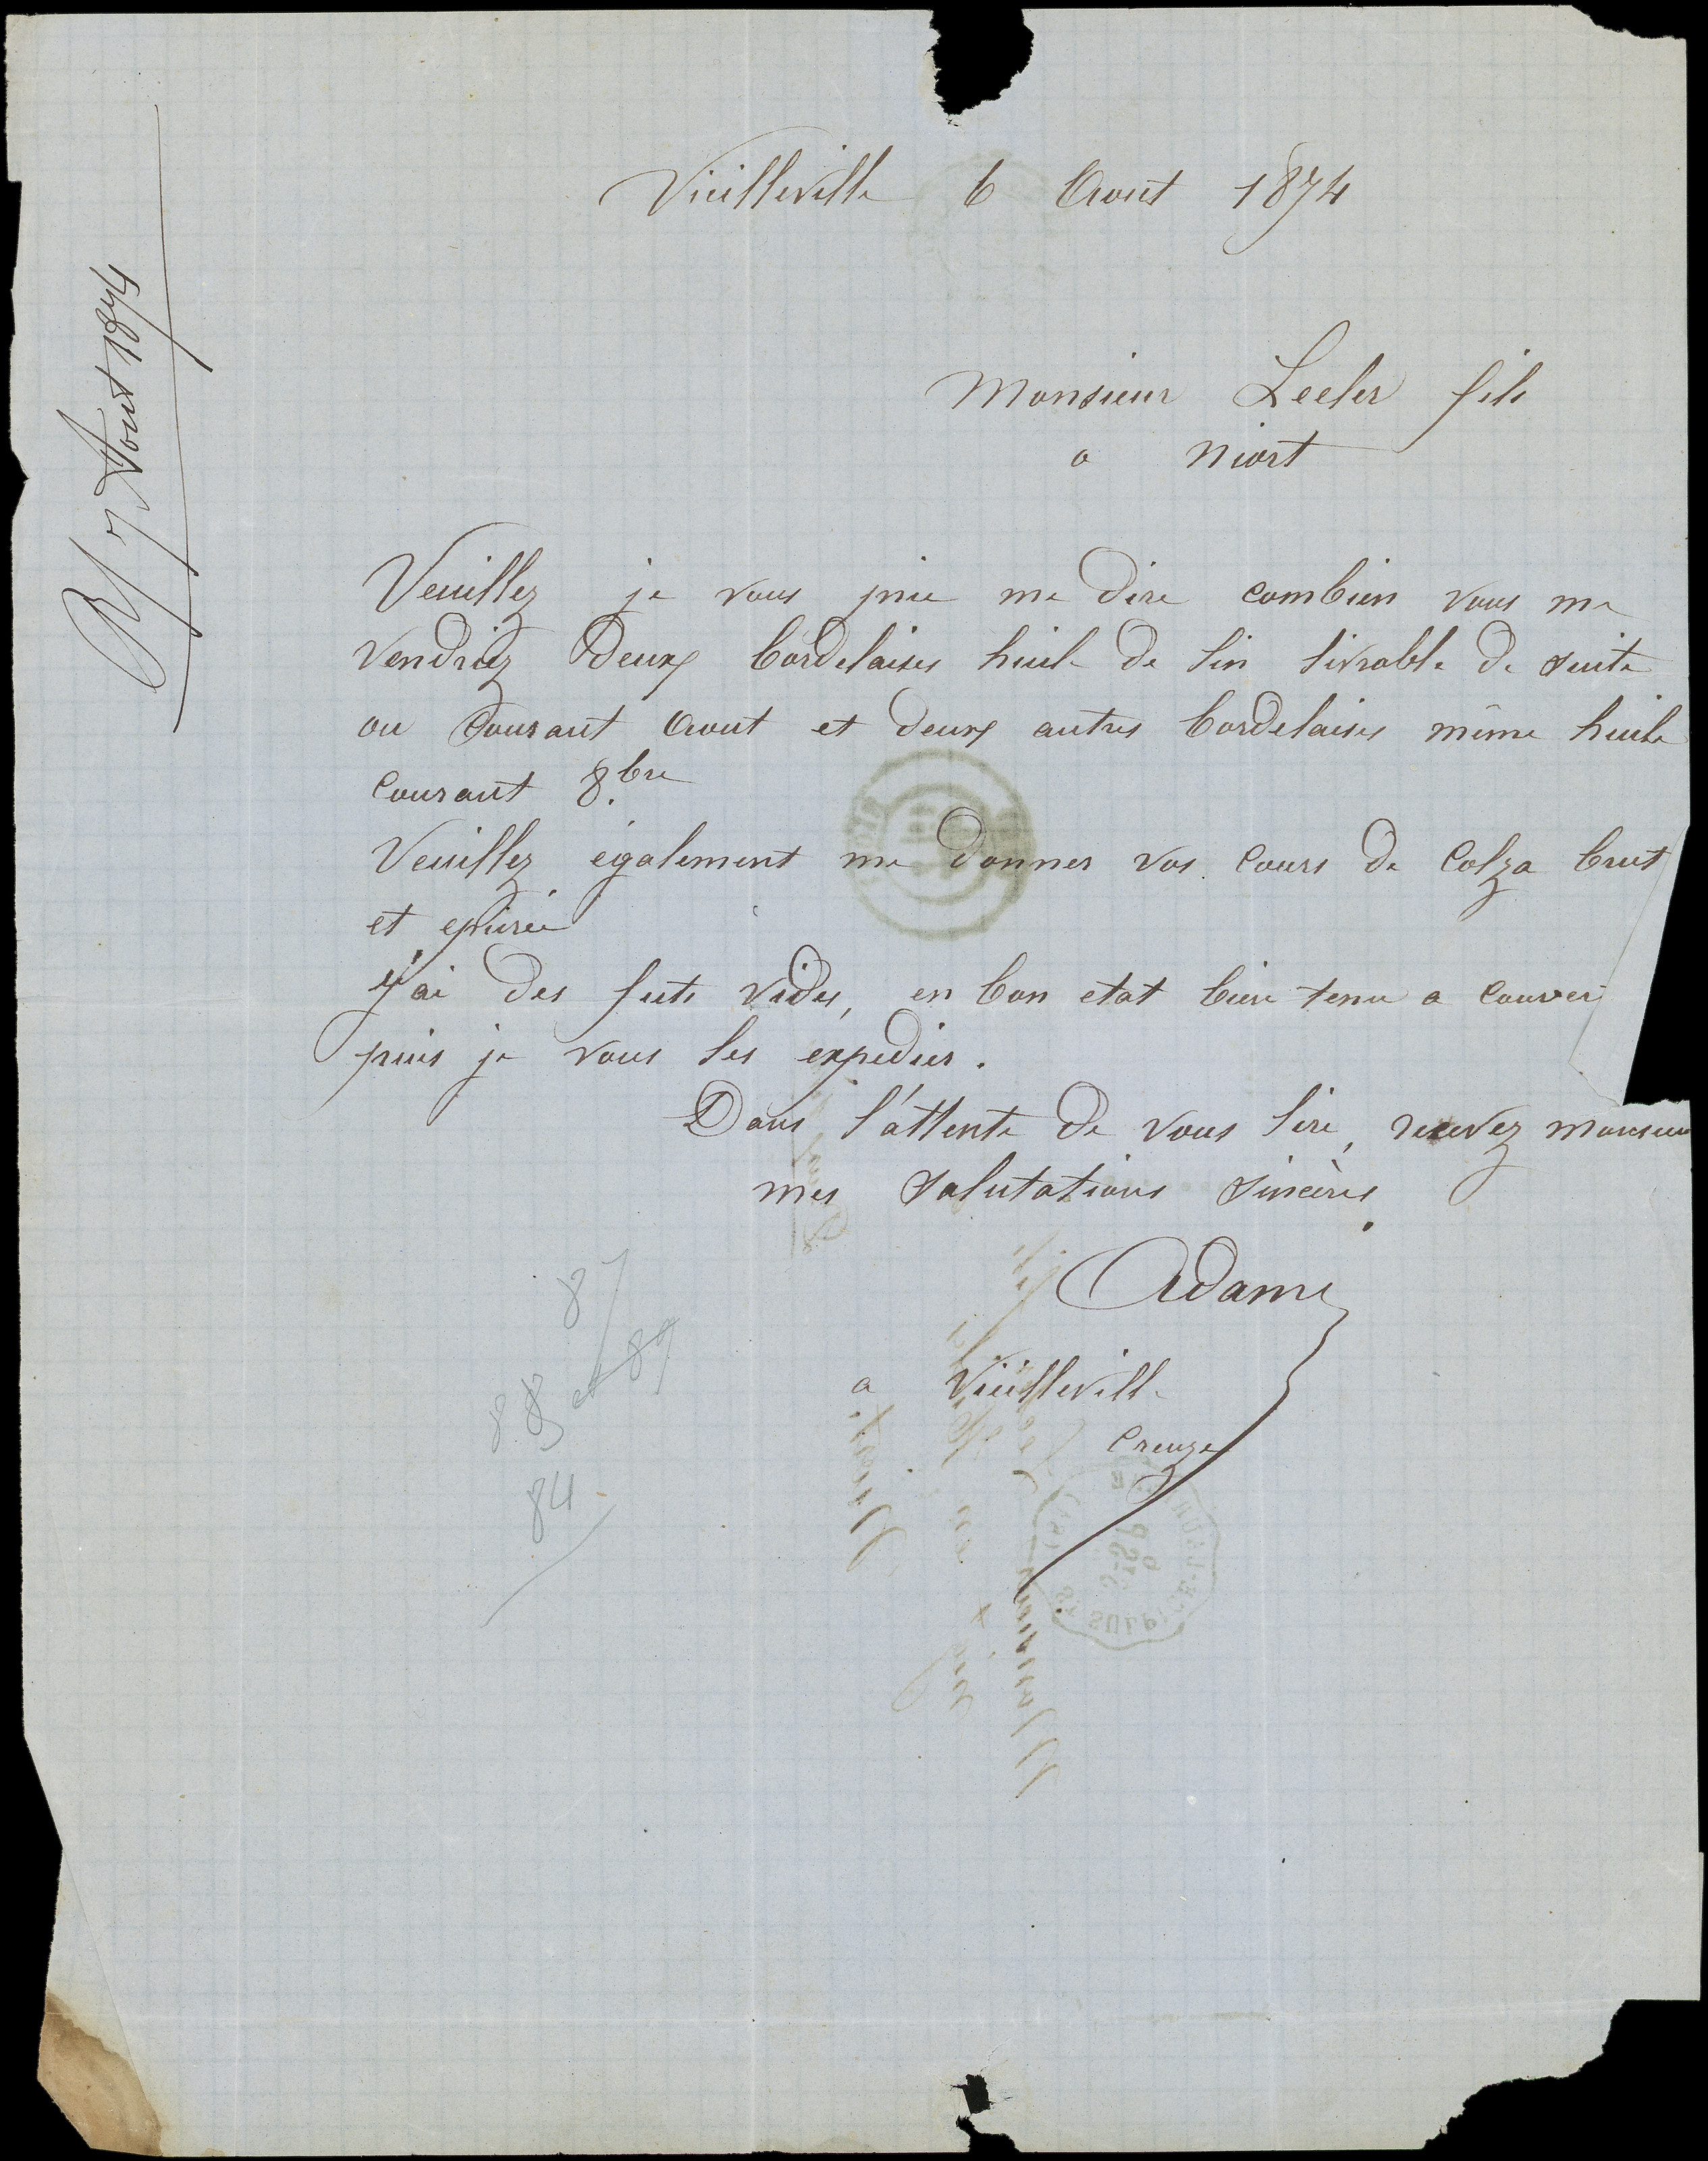 Vieilleville 6 Aout 1874
Monsieur Lecler fils
a Niort
Veuillez je vous prie me dire combien vous me
vendriez deux bordelaises huile de lin livrable de suite
ou courant Aout et deux autres bordelaises même huile
courant 8.bre
Veuillez également me donner vos cours de Colza brut
et epurée
J'ai des futs vides, en bon etat bien tenu a couvert
puis je vous les expedier.
Dans l'attente de vous lire, recevez monsieur
mes salutations sincères.
Adam
a Vieilleville
Creuze
R/ 7 Aout 1874
87
88 et 89
84